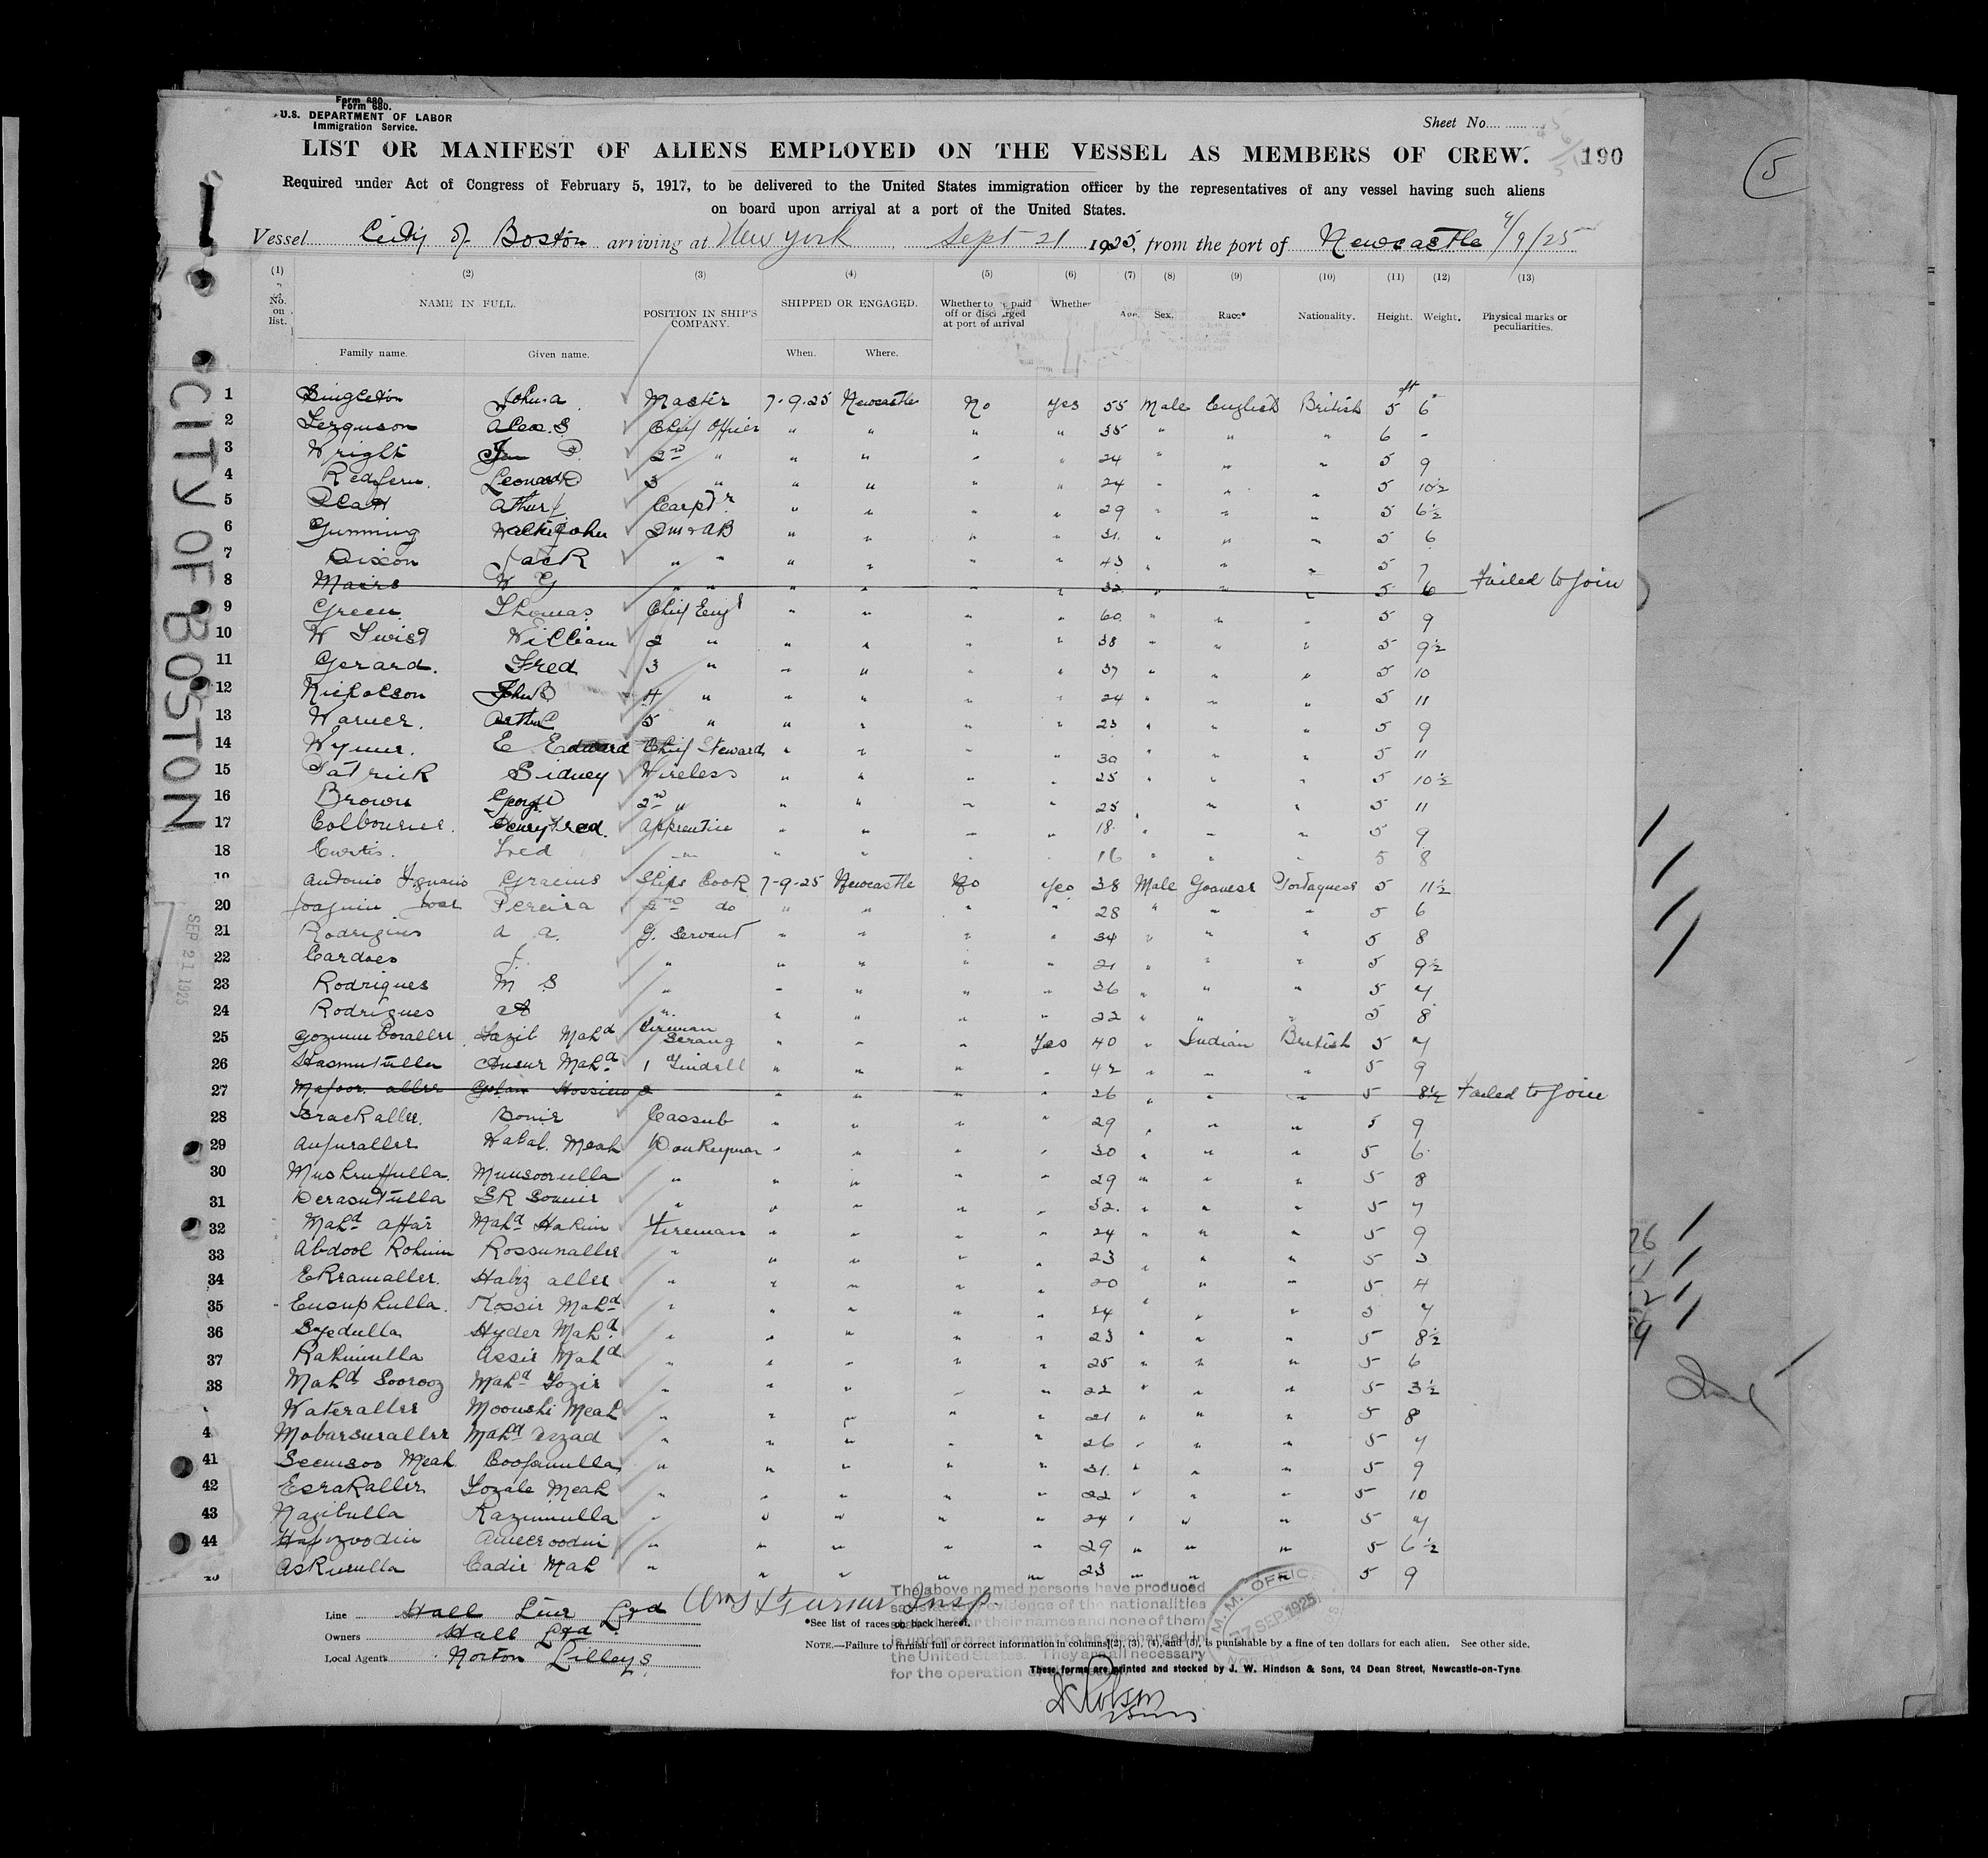 Form 680.
Form 680.
U.S. DEPARTMENT OF LABOR
Immigration Service.
Sheet No.
LIST OR MANIFEST OF ALIENS EMPLOYED ON THE VESSEL AS MEMBERS OF CREW. 190
Required under Act of Congress of February 5, 1917, to be delivered to the United States immigration officer by the representatives of any vessel having such aliens
on board upon arrival at a port of the United States.
Vessel City of Boston arriving at New York Sept 21 1925, from the port of Newcastle 7/9/25
(1) (2) (3) (4) (5) (6) (7) (8) (9) (10) (11) (12) (13)
No. on list. NAME IN FULL. POSITION IN SHIP'S COMPANY. SHIPPED OR ENGAGED. Whether to be paid off or discharged at port of arrival Whether Age. Sex. Race* Nationality. Height. Weight. Physical marks or peculiarities.
Family name. Given name. When. Where.
1 Singleton John. a Master 7-9-25 Newcastle No Yes 55 Male English British 5 ft 6"
2 Ferguson Alex. S. Chief Officer " " " " 35 " " " 6 -
3 Wright P. 2nd " " " " " 24 " " " 5 9
4 Redfern. Leonard 3 " " " " " 24 " " " 5 10½
5 Platt Athur Carptr " " " " 29 " " " 5 6½
6 Gunning John " " " " 31. " " " 5 6
7 Dixon Jack " " " " " " 43 " " " 5 7
8 Mairs W G " " " " " 32 " " " 5 6 Failed to join
9 Green. Thomas. Chief Engr " " " " 60. " " " 5 9
10 W Twist William 2 " " " " " 38 " " " 5 9½
11 Gerard. Fred 3 " " " " " 37 " " " 5 10
12 Nicholson John 4 " " " " " 24 " " " 5 11
13 Warner. 5 " " " " " 23 " " " 5 9
14 Wymer. E Edward Chief Steward " " " " 30 " " " 5 11
15 Patrick Sidney Wireless " " " " 25 " " " 5 10½
16 Brown George 2nd " " " " " 25 " " " 5 11
17 Colbourne. Henry Fred. Apprentice " " " " 18. " " " 5 9
18 Curtis. Fred " " " " " 16 " " " 5 8
Antonio Ignacio Gracius Ships Cook 7-9-25 Newcastle No Yes 38 Male Goanese Portuguese 5 11½
20 Joaquim Pereira 2nd do " " " " 28 " " " 5 6
21 Rodrigues a a. G. Servant " " " " 34 " " " 5 8
22 Cardoes J. " " " " " 21 " " " 5 9½
23 Rodrigues M S " " " " " 36 " " " 5 7
24 Rodrigues " " " " " 22 " " " 5 8
25 Fazil Mahd Fireman Serang " " " Yes 40 " Indian British 5 7
26 Hasmutulla Ansur Mahd 1 Tindall " " " " 42 " " " 5 9
27 Mafoor aller Golam Hossien 2 " " " " 26 " " " 5 8½ Failed to join
28 Israckaller. Bonir Cassub " " " " 29 " " " 5 9
29 Anfuraller Meah Donkeyman " " " " 30 " " " 5 6
30 Mushruffulla. Munsoorulla " " " " " 29 " " " 5 8
31 Derasutulla SK Somir " " " " " 32. " " " 5 7
32 Mahd Attar Mahd Hakim Fireman " " " " 24 " " " 5 9
33 Abdool Rohim Rossunaller " " " " " 23 " " " 5 3
34 Ekramaller. Hafiz aller " " " " " 20 " " " 5 4
35 Eusuphulla. Kossir Mahd " " " " " 24 " " " 5 7
36 Syedulla Hyder Mahd " " " " " 23 " " " 5 8½
37 Rahimulla Assir Mahd " " " " " 25 " " " 5 6
38 Mahd Soorooz Mahd Fozir " " " " " 22 " " " 5 3½
Wateraller Moonshi Meah " " " " " 21 " " " 5 8
4 Mobarsuraller Mahd Azzad " " " " " 26 " " " 5 7
41 Meah " " " " " 31. " " " 5 9
42 Esrakaller Fozale Meah " " " " " 22 " " " 5 10
43 Nazibulla Kazimulla " " " " " 24 " " " 5 7
44 Hafizoodin Ameeroodin " " " " " 29 " " " 5 6½
Askurulla Cadir Mah " " " " " 23 " " " 5 9
CITY OF BOSTON
SEP 21 1925
Line Hall Line Ltd
Owners Hall Ltd
Local Agents Norton Lilleys
Wm J Turner Insp.
The above named persons have produced
satisfactory evidence of the nationalities
their names and none of them
is under an agreement to be discharged in
the United States. They are all necessary
for the operation of
*See list of races on back hereof.
NOTE.—Failure to furnish full or correct information in columns (2), (3), (4), and (5), is punishable by a fine of ten dollars for each alien. See other side.
These forms are printed and stocked by J. W. Hindson & Sons, 24 Dean Street, Newcastle-on-Tyne
M. M. OFFICE
7 SEP. 1925
5